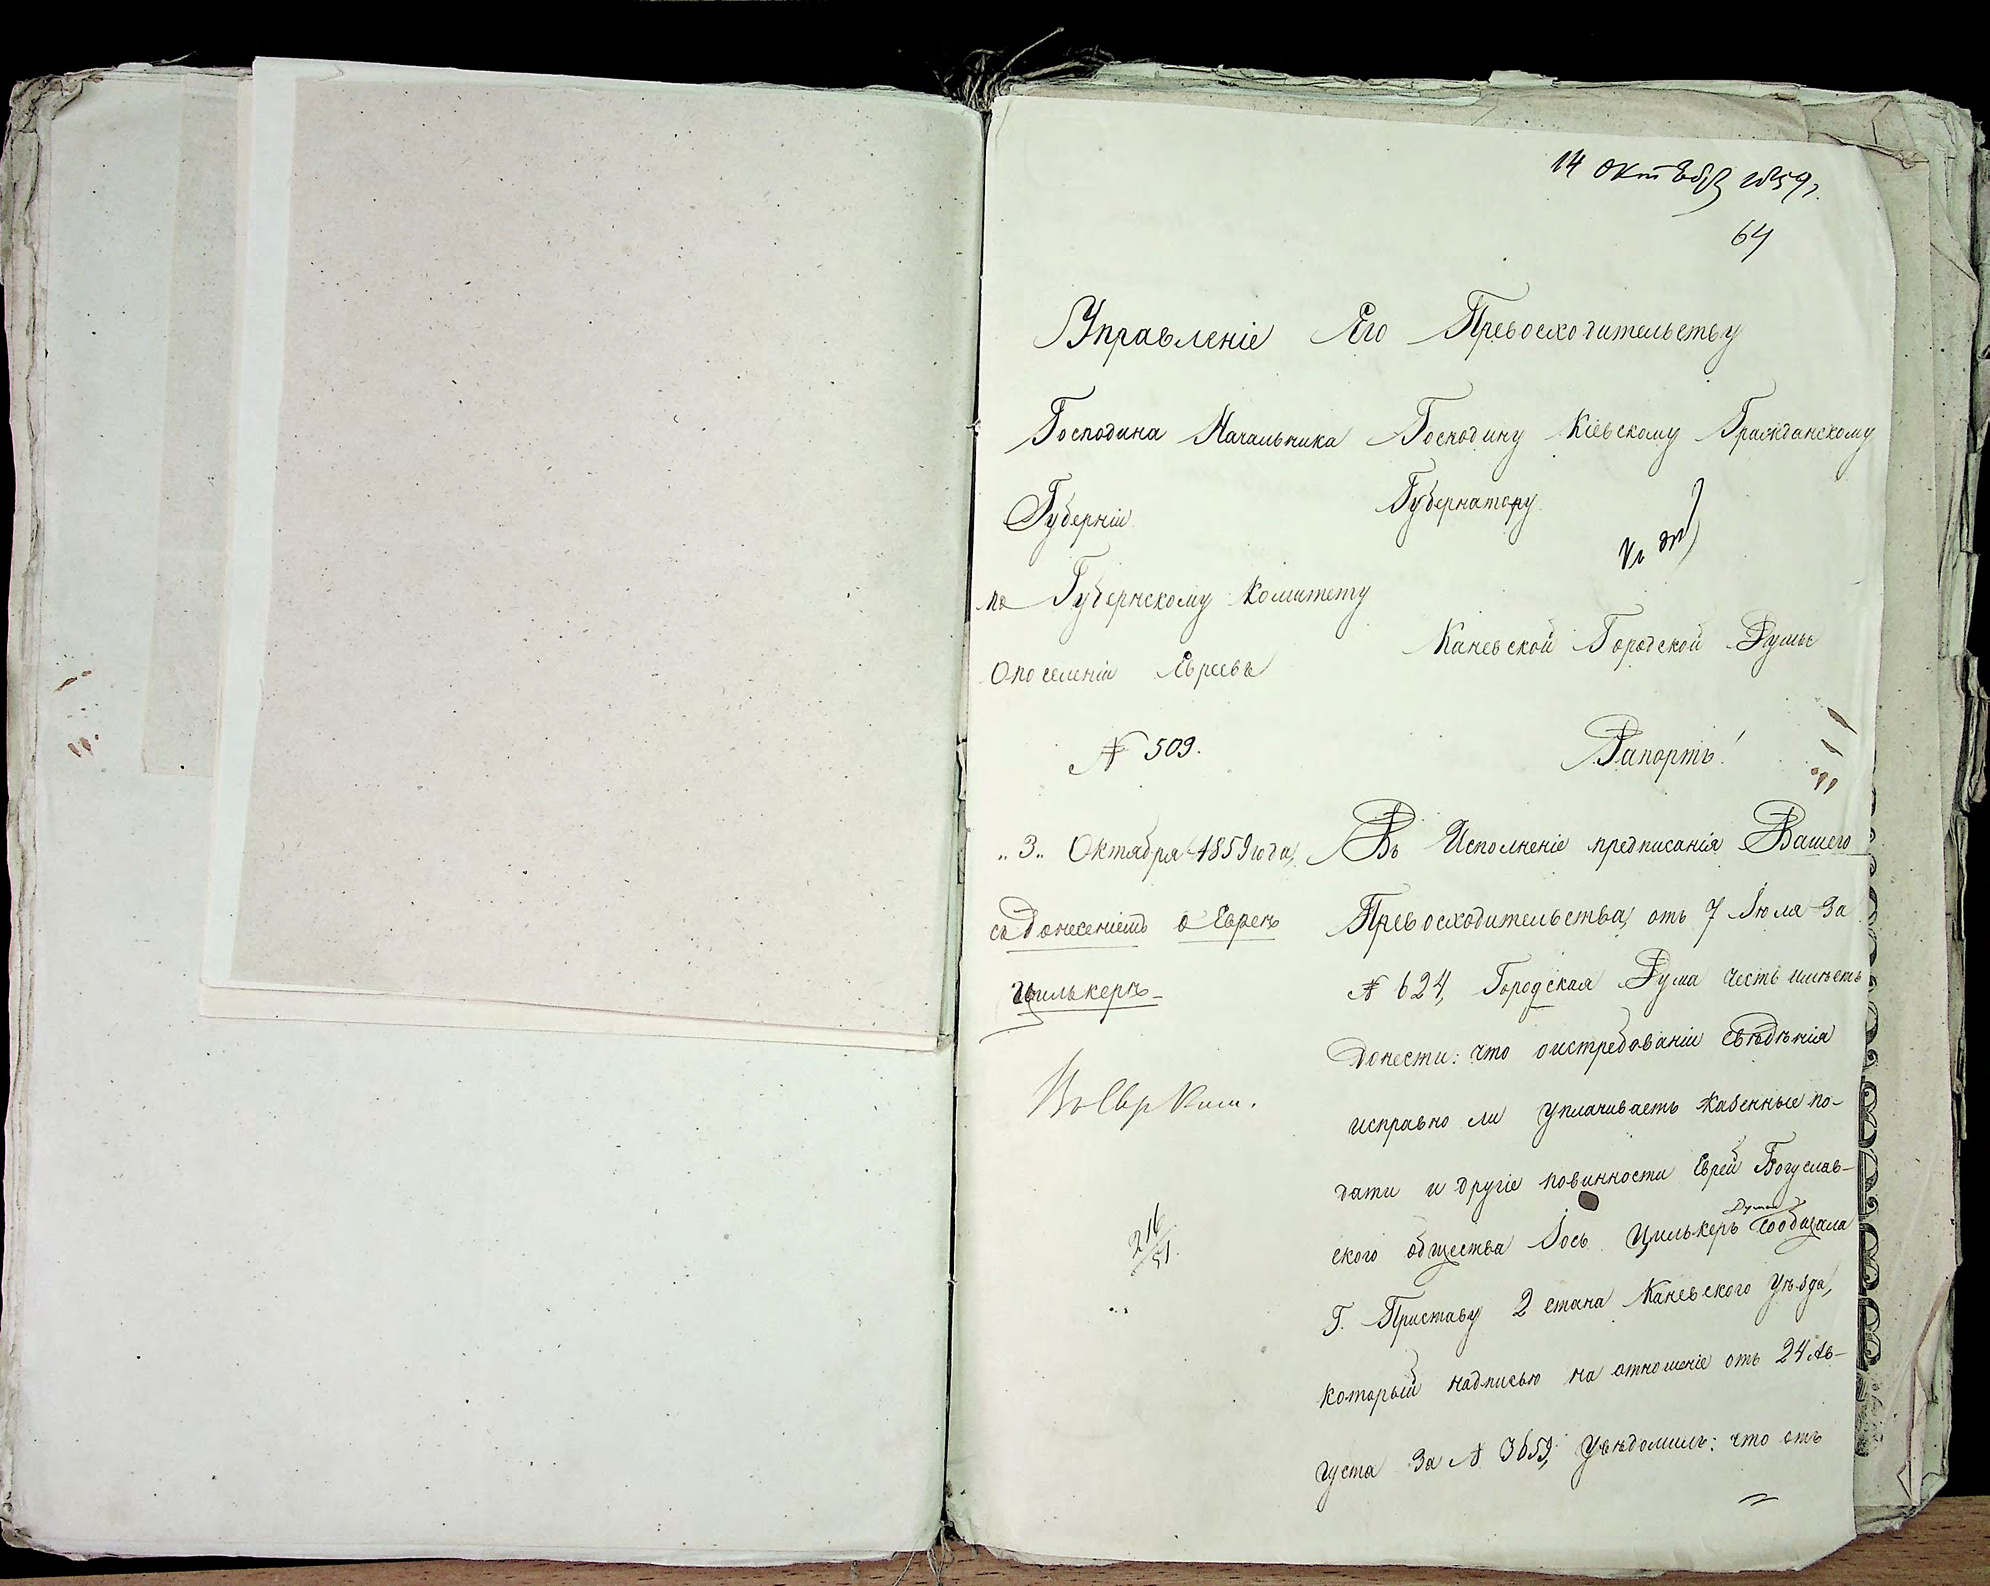 14 октября 1859 г.
64
Управленіе
Господина Начальника
Губерніи
по Губернскому Комитету
О поселеніи Евреевъ
№ 509.
„3„ Октября 1859 года
съ донесеніемъ о Евреѣ
Цилькерѣ
216/51.
Его Превосходительству
Господину Кіевскому Гражданскому
Губернатору
Каневской Городской Думы
Рапортъ!
Въ Исполненіе предписанія Вашего
Превосходительства, отъ 7 Іюля за
№ 624, Городская Дума честь имѣетъ
донести: что о истребованіи свѣдѣнія
исправно ли уплачиваетъ казенные по-
дати и другіе повинности Еврей Богуслав-
ского общества Іось Цилькеръ Дума сообщала
Г. Приставу 2 стана Каневского Уѣзда,
который надписью на отношеніе отъ 24 Ав-
густа за № 3659, увѣдомилъ: что отъ